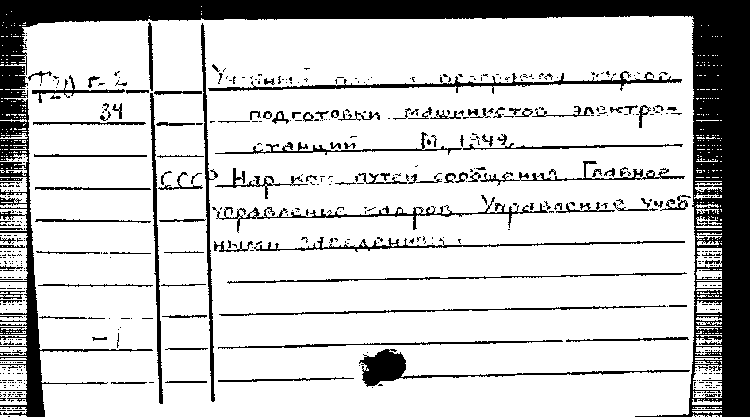 Т20 г-2 Учебный план и программы курсов
34 подготовки машинистов электро-
станций М., 1949.
СССР Нар. ком. путей сообщения. Главное
управление кадров. Управление учеб
ными заведениями.
-1